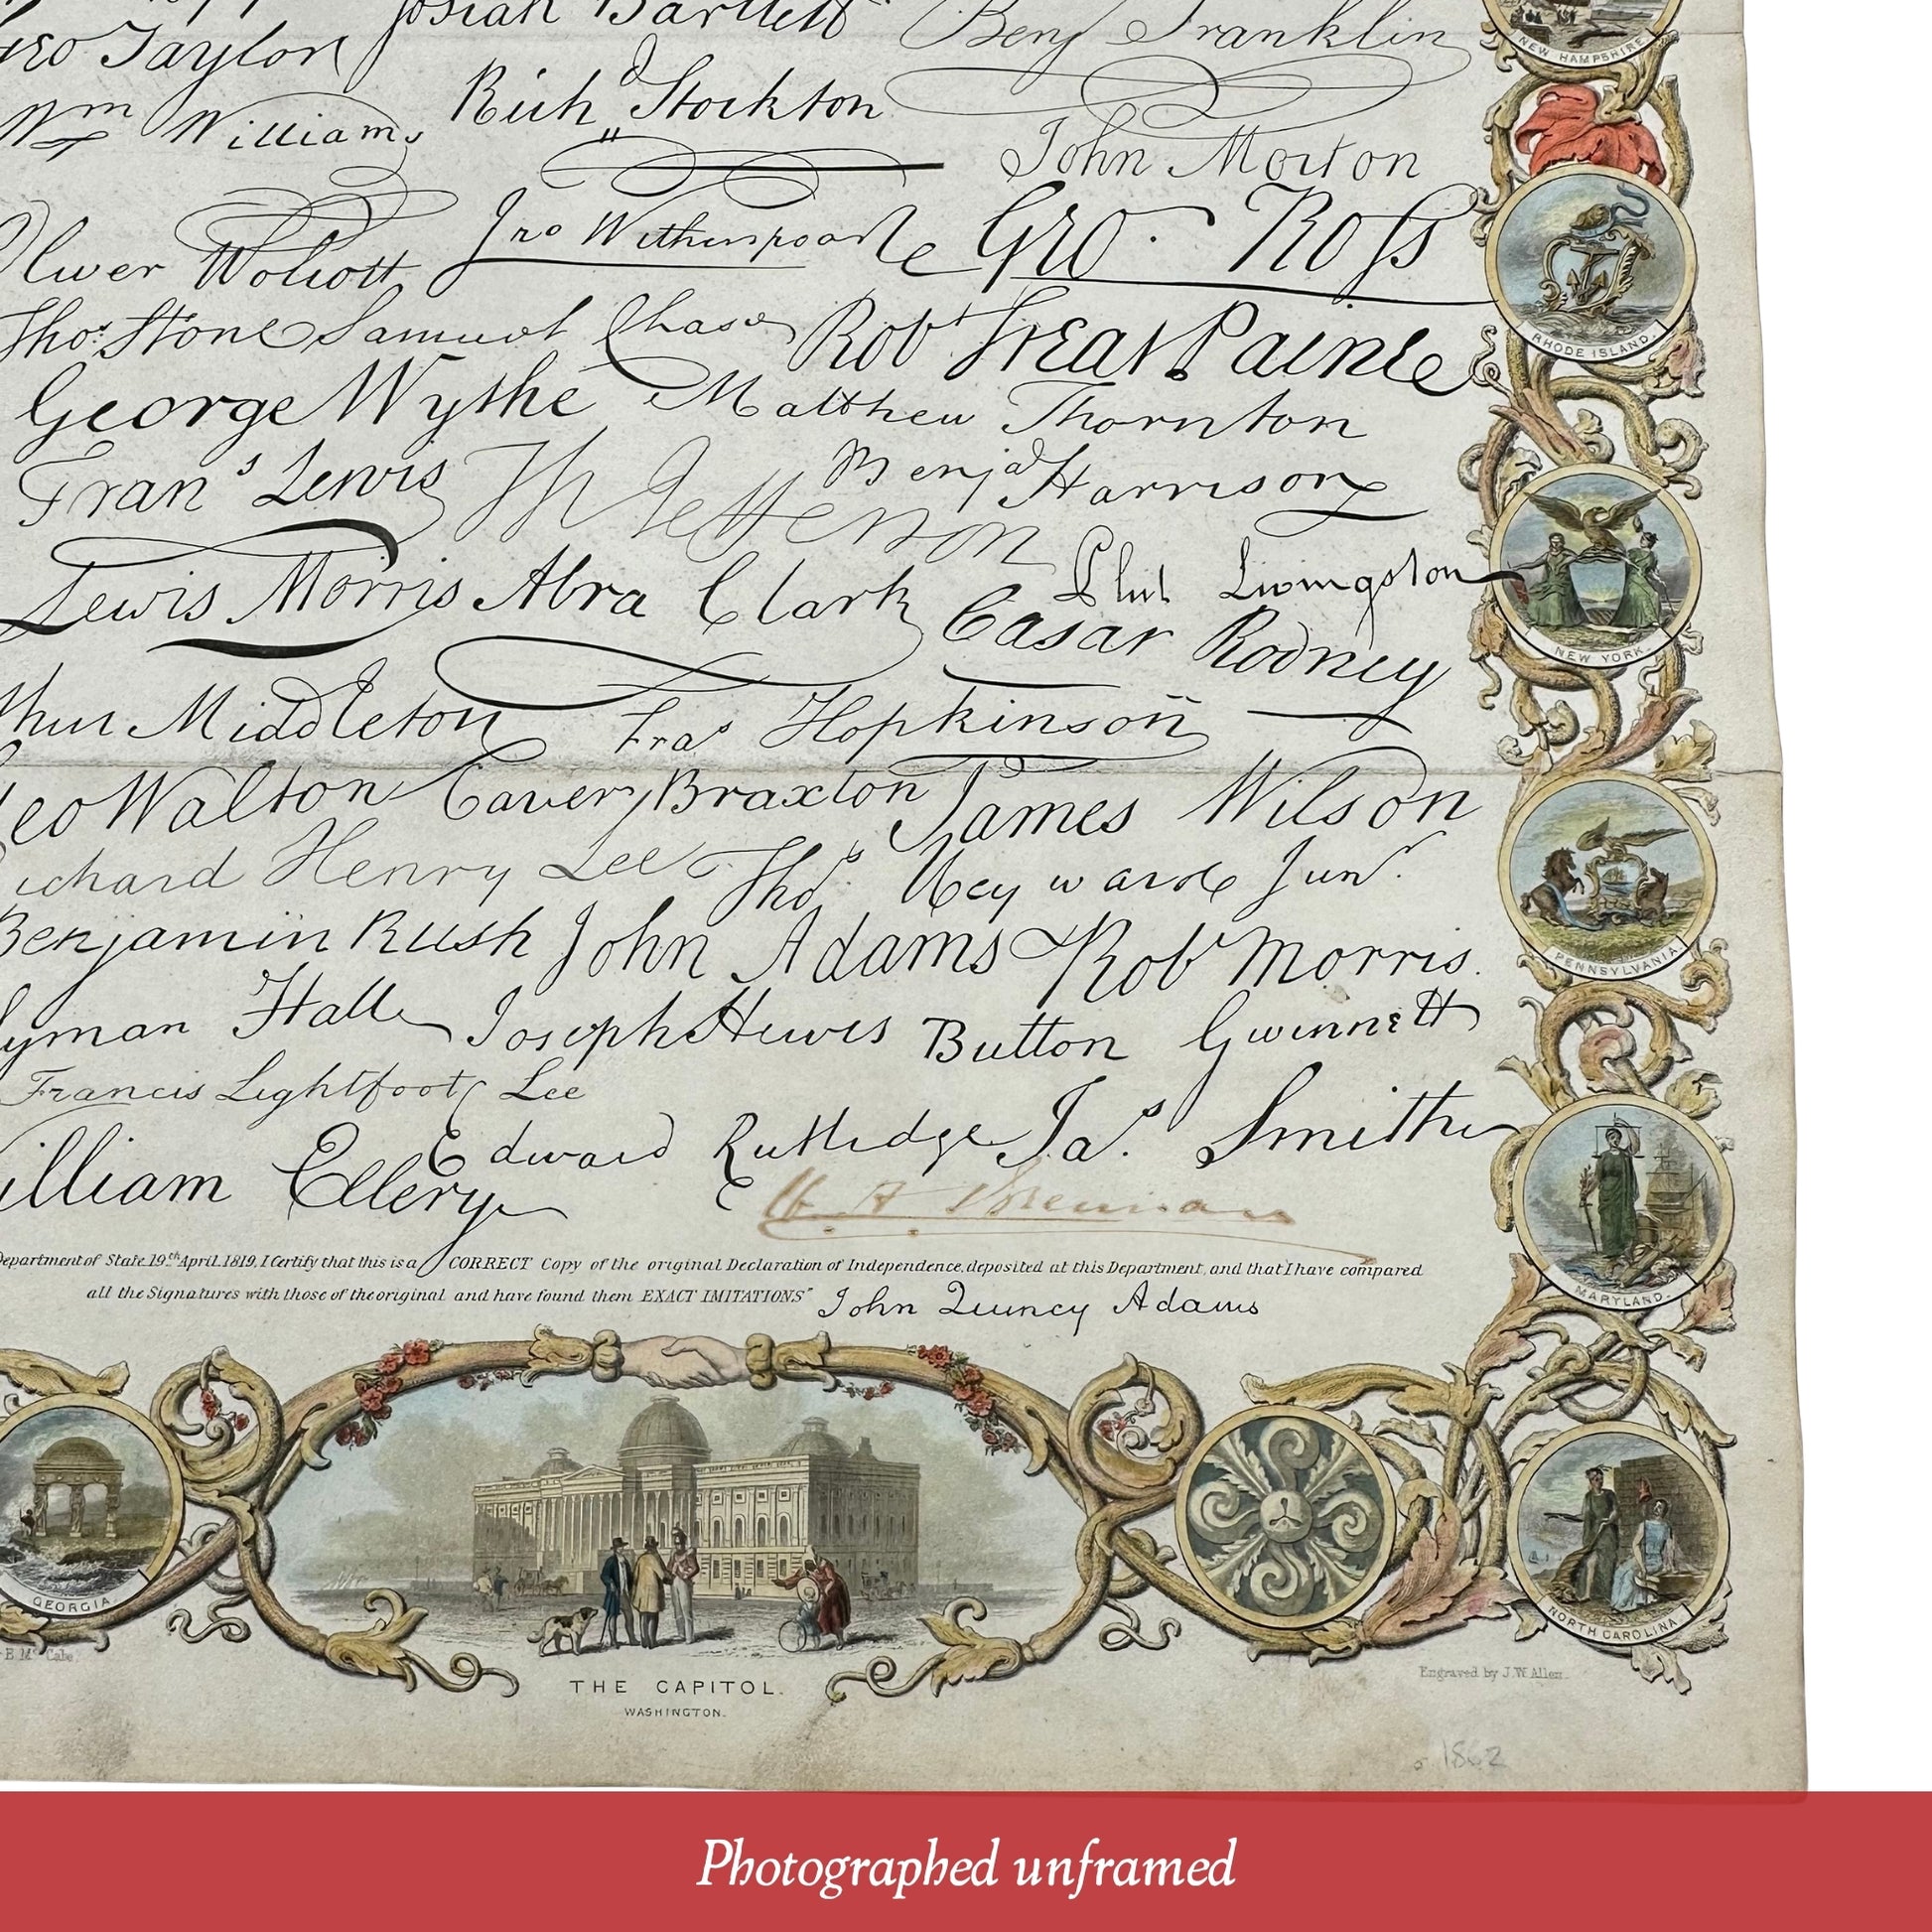 Geo Taylor Josiah Bartlett Benj Franklin
NEW HAMPSHIRE.
Wm Williams Richd Stockton
John Morton
Oliver Wolcott Jno Witherspoon Geo. Ross
RHODE ISLAND.
Thos. Stone Samuel Chase Robt Treat Paine
George Wythe Matthew Thornton
Frans Lewis Th Jefferson Benja Harrison
Lewis Morris Abra Clark Phil Livingston
NEW YORK.
Casar Rodney
thur Middleton Fras Hopkinson
Geo Walton Carter Braxton James Wilson
Richard Henry Lee Thos. Heyward Junr.
PENNSYLVANIA.
Benjamin Rush John Adams Robt Morris.
Lyman Hall Joseph Hewes Button Gwinnett
Francis Lightfoot Lee
William Ellery Edward Rutledge Jas. Smith
Department of State 19th April 1819, I Certify that this is a CORRECT Copy of the original Declaration of Independence, deposited at this Department, and that I have compared
all the Signatures with those of the original and have found them EXACT IMITATIONS" John Quincy Adams
MARYLAND.
GEORGIA.
NORTH CAROLINA.
B. Mc. Cabe.
THE CAPITOL.
WASHINGTON.
Engraved by J.W. Allen.
1862
Photographed unframed